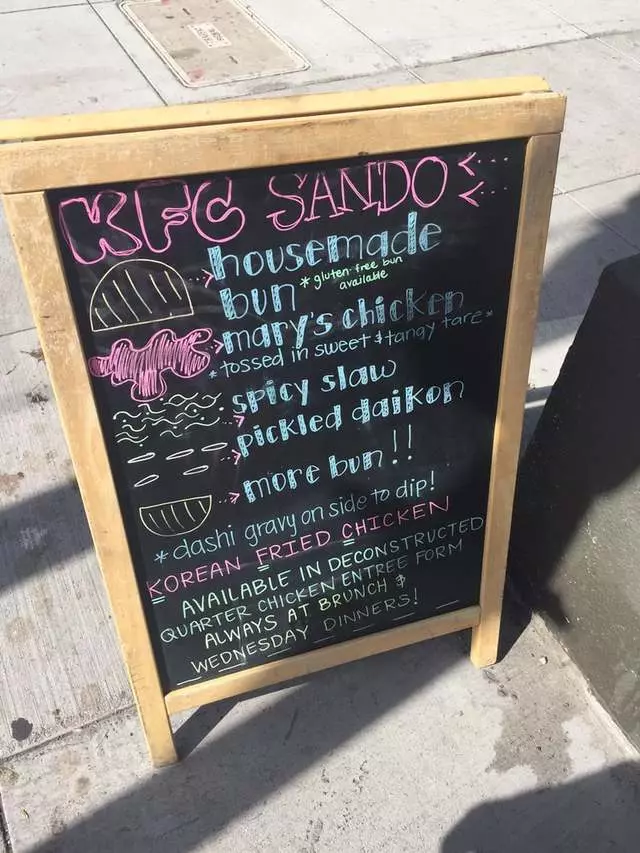 KFC SANDO
housemade
bun * gluten free bun
available
mary's chicken
* tossed in sweet & tangy tare *
spicy slaw
pickled daikon
more bun!!
* dashi gravy on side to dip!
KOREAN FRIED CHICKEN
AVAILABLE IN DECONSTRUCTED
QUARTER CHICKEN ENTREE FORM
ALWAYS AT BRUNCH &
WEDNESDAY DINNERS!